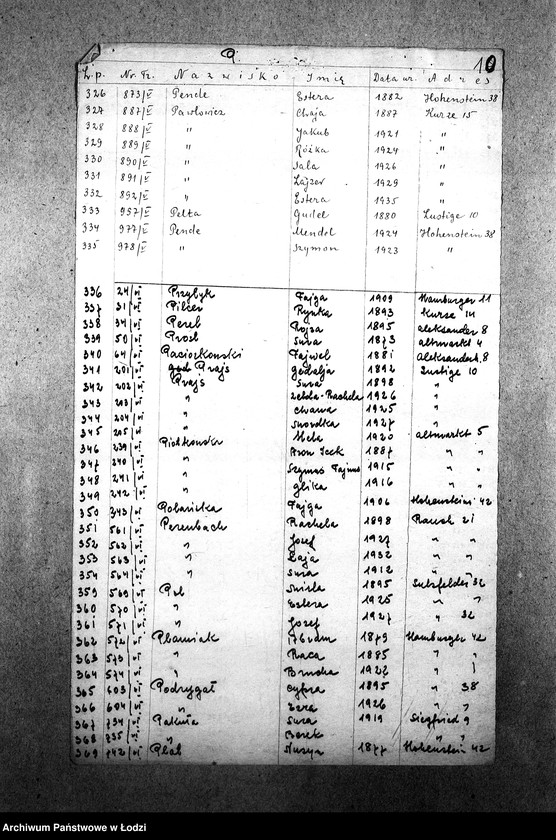 P. 10
L.p. Nr. Tr. Nazwisko Imię Data ur. Adres
326 873/V Pende Estera 1882 Hohenstein 38
327 887/V Pawłowicz Chaja 1887 Kurze 15
328 888/V " Jakub 1921 "
329 889/V " Różka 1924 "
330 890/V " Sala 1926 "
331 891/V " Lajzer 1929 "
332 892/V " Estera 1935 "
333 957/V Pelta Gudel 1880 Lustige 10
334 977/V Pende Mendel 1924 Hohenstein 38
335 978/V " Szymon 1923 "
336 24/VI Przybyk Fajga 1909 Hamburger 11
337 31/VI Pilcer Rywka 1893 Kurse 14
338 34/VI Perel Rojza 1895 Aleksander 8
339 50/VI Prost Sura 1873 Altmarkt 4
340 64/VI Paciorkowski Fajwel 1881 Aleksanderh. 8
341 201/VI Prajs Gedalja 1892 Lustige 10
342 202/VI Prajs Sura 1898 "
343 203/VI " Rachela 1926 "
344 204/VI " Chawa 1925 "
345 205/VI " 1927 "
346 239/VI Piotrkowska Hela 1920 Altmarkt 5
347 240/VI " Aron Icek 1887 " "
348 241/VI " Szymus Fajwus 1915 " "
349 242/VI " Glika 1916 " "
350 343/VI Fajga 1906 Hohenstein 42
351 561/VI Perenbach Rachela 1898 Rauch 21
352 562/VI " Josef 1927 " "
353 563/VI " Łaja 1932 " "
354 564/VI " Sura 1912 " "
359 569/VI Pol 1895 Sulzfelder 32
360 570/VI " Estera 1925 " "
361 571/VI " Jozef 1927 " 32
362 572/VI Pławniak Abram 1879 Hamburger 42
363 573/VI " Raca 1885 " "
364 574/VI " Brucha 1922 "
365 603/VI Podrygał Cyfra 1895 " 38
366 604/VI " 1926 " "
367 734/VI Pakuła Sura 1919 Siegfried 9
368 735/VI " Berek " "
369 742/VI Płat 1877 Hohenstein 42
Archiwum Państwowe w Łodzi